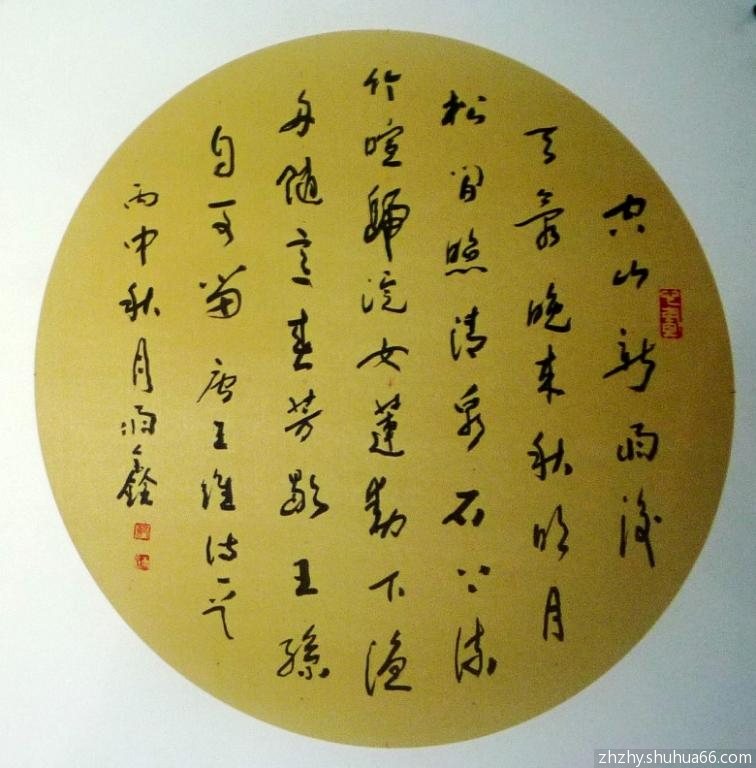 空山新雨後
天氣晚來秋明月
松间照清泉石上流
竹喧歸浣女蓮動下漁
舟随意春芳歇王孫
自可留 唐王維诗一首
丙申秋月
zhzhy.shuhua66.com